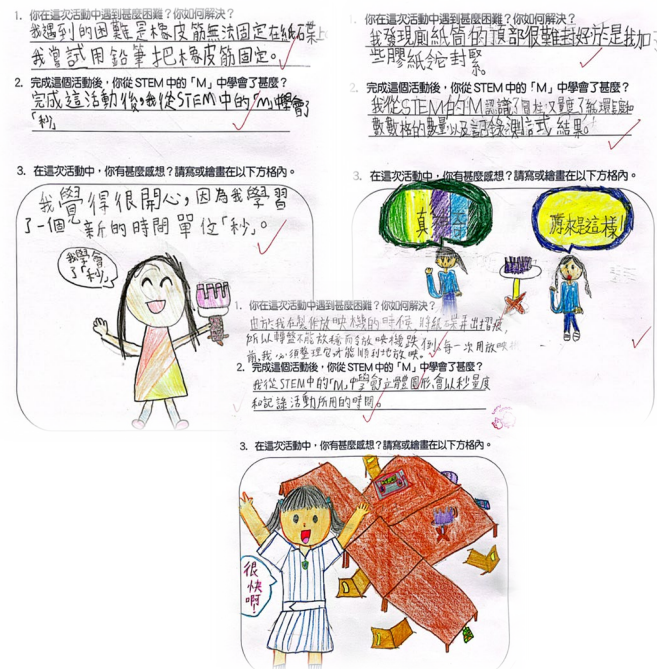 1. 你在這次活動中遇到甚麼困難？你如何解決？
我遇到的困難是橡皮筋無法固定在紙碟上
我嘗試用鉛筆把橡皮筋固定。
2. 完成這個活動後，你從 STEM 中的「M」中學會了甚麼？
完成這活動後，我從STEM中的「M」中學會了
「秒」
3. 在這次活動中，你有甚麼感想？請寫或繪畫在以下方格內。
我覺得很開心，因為我學習
了一個新的時間單位「秒」。
我學會
了「秒」
1. 你在這次活動中遇到甚麼困難？你如何解決？
我發現廁紙筒的頂部很難封好於是我加
些膠紙封緊。
2. 完成這個活動後，你從 STEM 中的「M」中學會了甚麼？
我從STEM的M認識了圓柱又量度了
數數格的數量以及記錄測試結果。
3. 在這次活動中，你有甚麼感想？請寫或繪畫在以下方格內。
原來是這樣!!
1. 你在這次活動中遇到甚麼困難？你如何解決？
我在製作放映機的時候，時紙碟弄出摺痕，
所以轉盤不能放穩而令放映機跌倒。每一次用放映機
前，我必須整理它才能順利地放映。
2. 完成這個活動後，你從 STEM 中的「M」中學會了甚麼？
我從STEM中的「M」中學會立體圖形會以秒量度
和記錄活動所用的時間。
3. 在這次活動中，你有甚麼感想？請寫或繪畫在以下方格內。
很快啊!